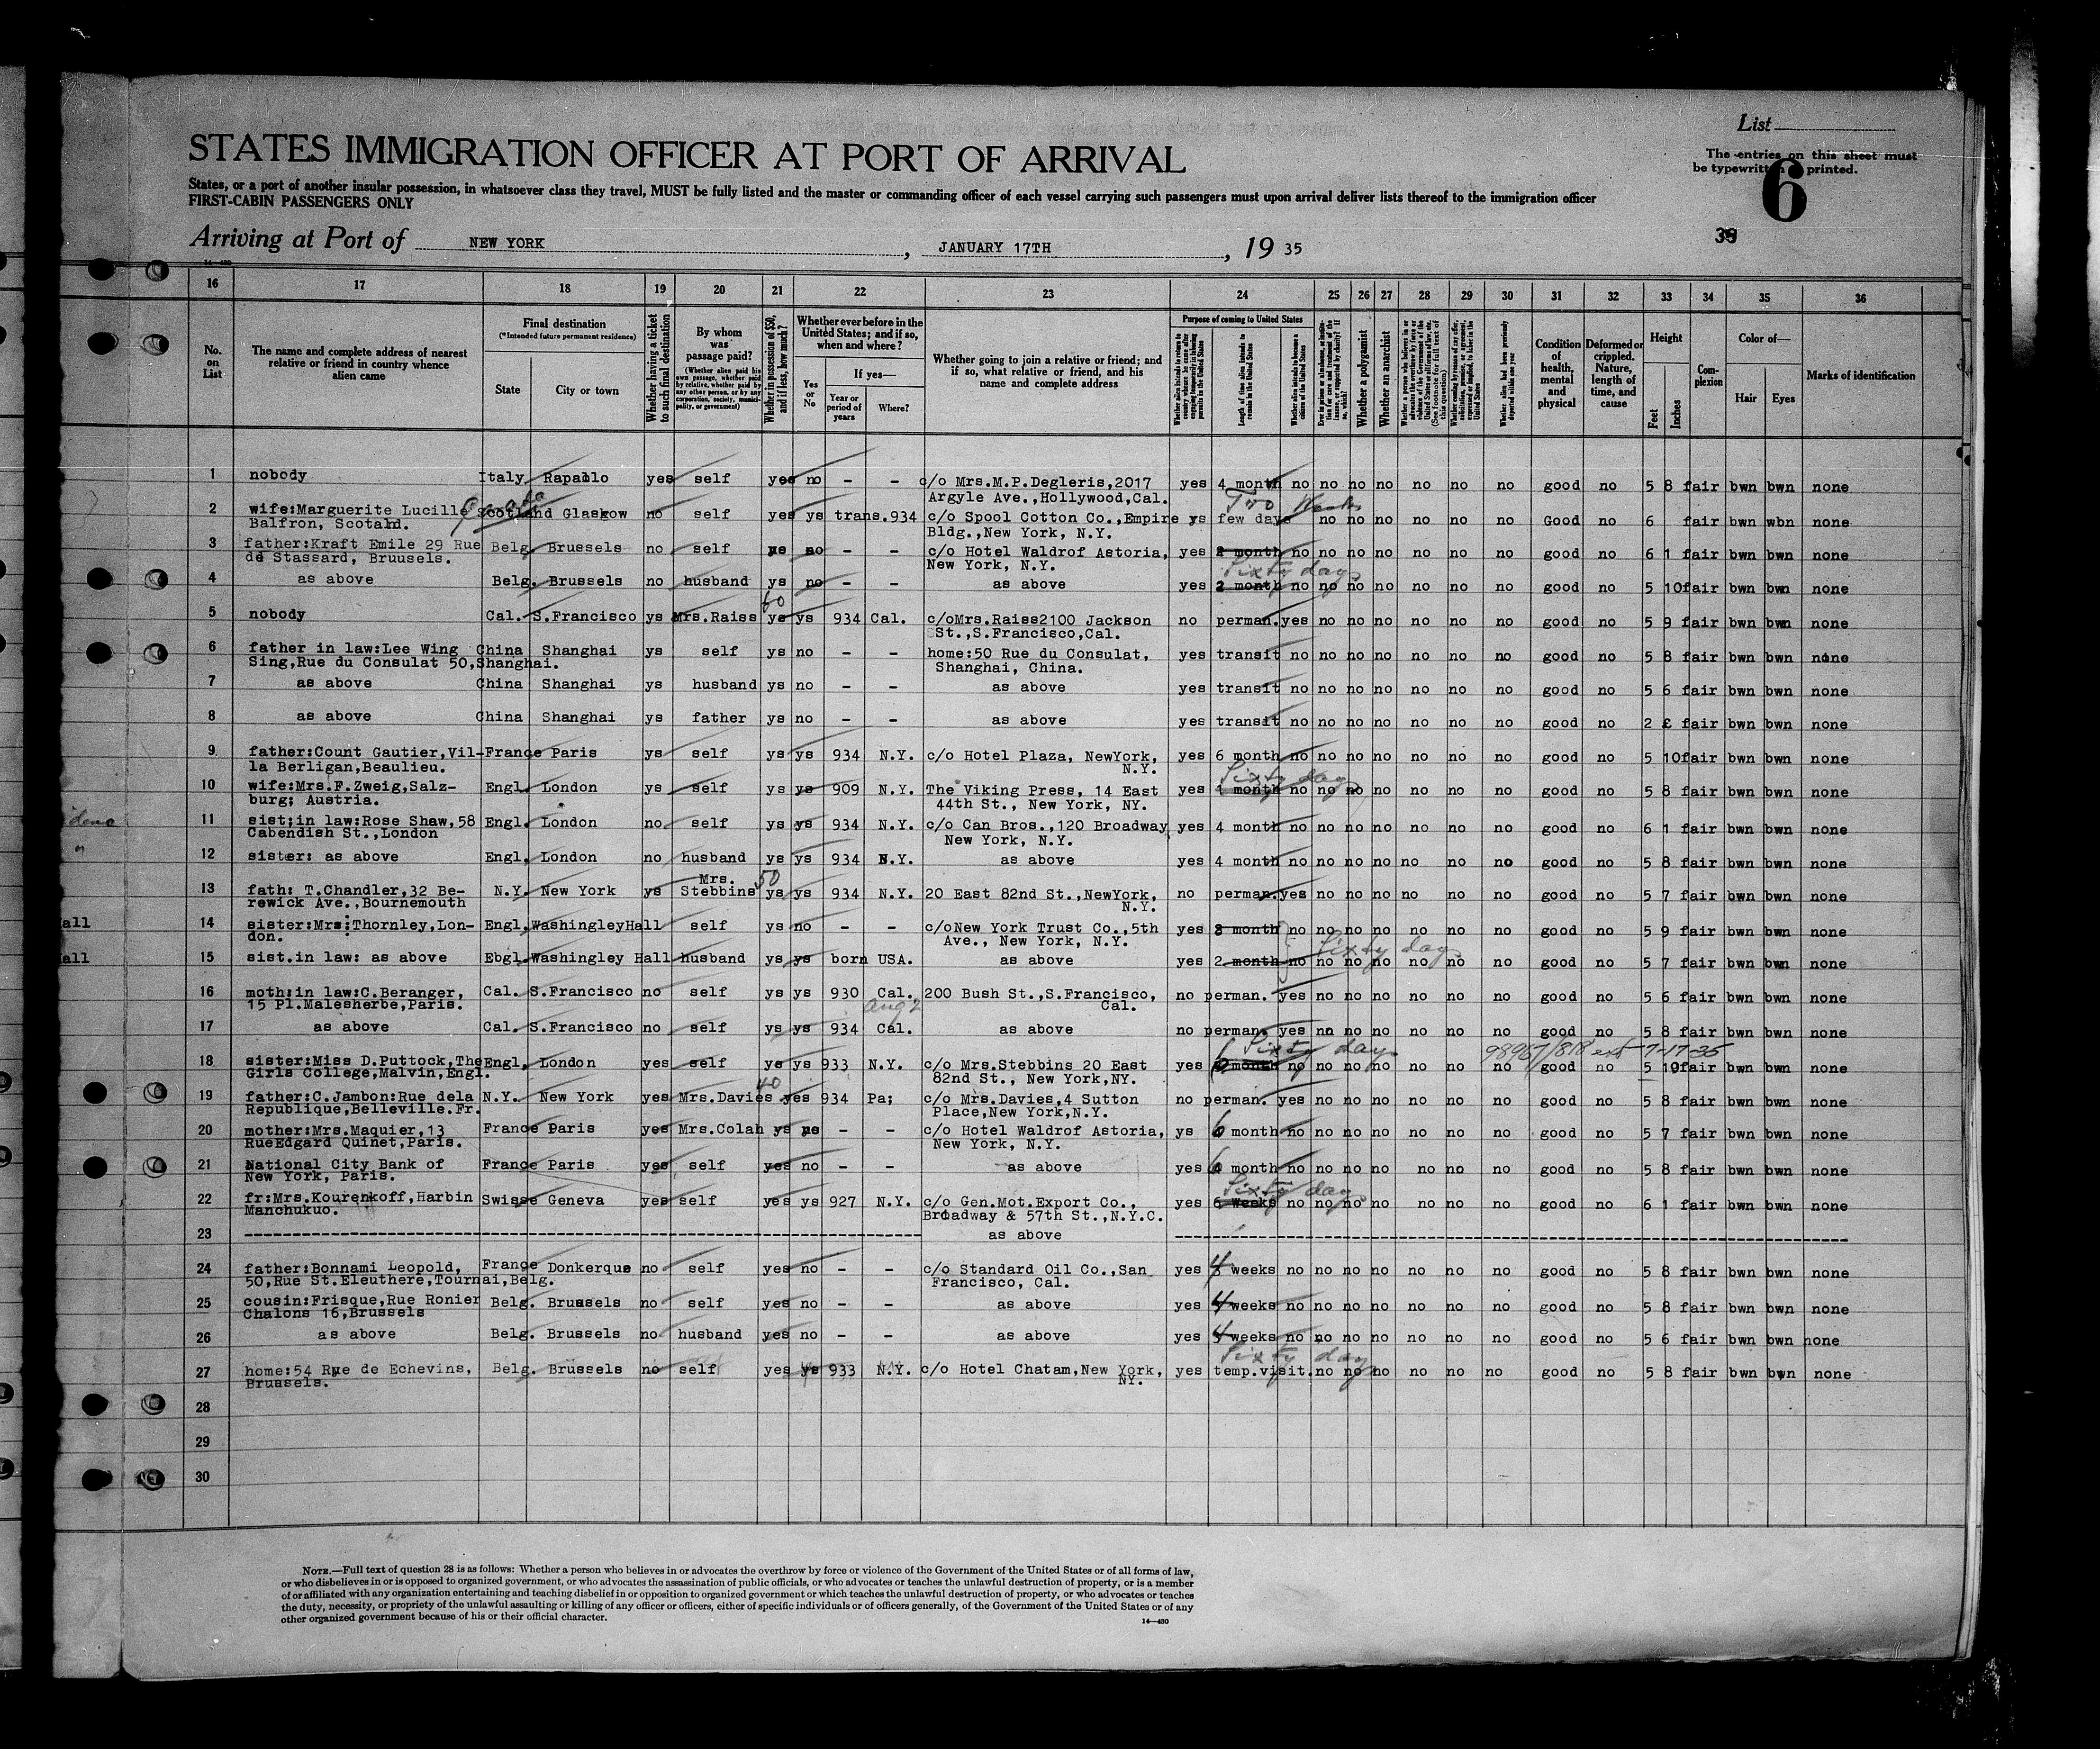 List
The entries on this sheet must
be typewritten or printed.
6
39
STATES IMMIGRATION OFFICER AT PORT OF ARRIVAL
States, or a port of another insular possession, in whatsoever class they travel, MUST be fully listed and the master or commanding officer of each vessel carrying such passengers must upon arrival deliver lists thereof to the immigration officer
FIRST-CABIN PASSENGERS ONLY
Arriving at Port of NEW YORK, JANUARY 17TH, 19 35
16 17 18 19 20 21 22 23 24 25 26 27 28 29 30 31 32 33 34 35 36
No. on List
The name and complete address of nearest relative or friend in country whence alien came
Final destination
(*Intended future permanent residence)
State City or town
Whether having a ticket to such final destination
By whom was passage paid?
(Whether alien paid his own passage, whether paid by relative, whether paid by any other person, or by any corporation, society, municipality, or government)
Whether in possession of $50, and if less, how much?
Whether ever before in the United States; and if so, when and where?
Yes or No
If yes—
Year or period of years Where?
Whether going to join a relative or friend; and if so, what relative or friend, and his name and complete address
Purpose of coming to United States
Length of time alien intends to remain in the United States
Whether alien intends to become a citizen of the United States
Whether a polygamist
Whether an anarchist
Condition of health, mental and physical
Deformed or crippled. Nature, length of time, and cause
Height
Feet Inches
Complexion
Color of—
Hair Eyes
Marks of identification
1 nobody Italy Rapallo yes self yes no - - c/o Mrs.M.P.Degleris,2017 yes 4 month no no no no no no no good no 5 8 fair bwn bwn none
Argyle Ave.,Hollywood,Cal.
Canada Two Weeks
2 wife:Marguerite Lucille Scotland Glasgow no self yes ys trans.934 c/o Spool Cotton Co.,Empire ys few days no no no no no no Good no 6 fair bwn wbn none
Balfron, Scotalnd. Bldg.,New York, N.Y.
3 father:Kraft Emile 29 Rue Belg. Brussels no self no - - c/o Hotel Waldrof Astoria, yes 2 month no no no no no no no good no 6 1 fair bwn bwn none
de Stassard, Bruusels. New York, N.Y.
Sixty days
4 as above Belg. Brussels no husband ys no - - as above yes 2 month no no no no no no no good no 5 10fair bwn bwn none
60
5 nobody Cal. S.Francisco ys Mrs.Raiss ys ys 934 Cal. c/oMrs.Raiss2100 Jackson no perman.yes no no no no no no good no 5 9 fair bwn bwn none
St.,S.Francisco,Cal.
6 father in law:Lee Wing China Shanghai ys self ys no - - home:50 Rue du Consulat, yes transit no no no no no no no good no 5 8 fair bwn bwn none
Sing,Rue du Consulat 50,Shanghai. Shanghai, China.
7 as above China Shanghai ys husband ys no - - as above yes transit no no no no no no no good no 5 6 fair bwn bwn none
8 as above China Shanghai ys father ys no - - as above yes transit no no no no no no no good no 2 fair bwn bwn none
9 father:Count Gautier,Vil- France Paris ys self ys ys 934 N.Y. c/o Hotel Plaza, NewYork, yes 6 month no no no no no no no good no 5 10fair bwn bwn none
la Berligan,Beaulieu. N.Y.
Sixty days
10 wife:Mrs.F.Zweig,Salz- Engl. London ys self ys ys 909 N.Y. The Viking Press, 14 East yes 1 month no no no no no no no good no 5 8 fair bwn bwn none
burg; Austria. 44th St., New York, NY.
11 sist;in law:Rose Shaw,58 Engl. London no self ys ys 934 N.Y. c/o Can Bros.,120 Broadway yes 4 month no no no no no no no good no 6 1 fair bwn bwn none
Cabendish St.,London New York, N.Y.
12 sister: as above Engl. London no husband ys ys 934 N.Y. as above yes 4 month no no no no no no no good no 5 8 fair bwn bwn none
Mrs. 50
13 fath: T.Chandler,32 Be- N.Y. New York ys Stebbins ys ys 934 N.Y. 20 East 82nd St.,NewYork, no perman.yes no no no no no no good no 5 7 fair bwn bwn none
rewick Ave.,Bournemouth N.Y.
all 14 sister:Mrs:Thornley,Lon- Engl.WashingleyHall self ys no - - c/oNew York Trust Co.,5th yes month no no no no no no no good no 5 9 fair bwn bwn none
don. Ave., New York, N.Y.
Sixty days
all 15 sist.in law: as above Ebgl.Washingley Hall husband ys ys born USA. as above yes 2 month no no no no no no no good no 5 7 fair bwn bwn none
16 moth;in law:C.Beranger, Cal. S.Francisco no self ys ys 930 Cal. 200 Bush St.,S.Francisco, no perman. yes no no no no no no good no 5 6 fair bwn bwn none
15 Pl.Malesherbe,Paris. Cal.
17 as above Cal. S.Francisco no self ys ys 934 Cal. as above no perman. yes no no no no no no good no 5 8 fair bwn bwn none
Sixty days 7-17-35
18 sister:Miss D.Puttock,The Engl. London yes self ys ys 933 N.Y. c/o Mrs.Stebbins 20 East yes month no no no no no no no good no 5 10fair bwn bwn none
Girls College,Malvin,Engl. 82nd St., New York,NY.
40
19 father:C.Jambon:Rue dela N.Y. New York yes Mrs.Davies yes 934 Pa; c/o Mrs.Davies,4 Sutton no perman. yes no no no no no no good no 5 8 fair bwn bwn none
Republique,Belleville.Fr. Place,New York,N.Y.
20 mother:Mrs.Maquier,13 France Paris yes Mrs.Colah ys - - c/o Hotel Waldrof Astoria, ys 6 month no no no no no no no good no 5 7 fair bwn bwn none
RueEdgard Quinet,Paris. New York, N.Y.
21 National City Bank of France Paris yes self yes no - - as above yes 6 month no no no no no no no good no 5 8 fair bwn bwn none
New York, Paris.
Sixty days
22 fr:Mrs.Kourenkoff,Harbin Swisse Geneva yes self yes ys 927 N.Y. c/o Gen.Mot.Export Co., yes 6 weeks no no no no no no no good no 6 1 fair bwn bwn none
Manchukuo. Broadway & 57th St.,N.Y.C.
23 as above
24 father:Bonnami Leopold, France Donkerque no self yes no - - c/o Standard Oil Co.,San yes 4 weeks no no no no no no no good no 5 8 fair bwn bwn none
50,Rue St.Eleuthere,Tournai,Belg. Francisco, Cal.
25 cousin:Frisque,Rue Ronier Belg. Brussels no self yes no - - as above yes 4 weeks no no no no no no no good no 5 8 fair bwn bwn none
Chalons 16,Brussels
26 as above Belg. Brussels no husband yes no - - as above yes 4 weeks no no no no no no no good no 5 6 fair bwn bwn none
Sixty days
27 home:54 Rue de Echevins, Belg. Brussels no self yes ys 933 N.Y. c/o Hotel Chatam,New York, yes temp.visit.no no no no no no good no 5 8 fair bwn bwn none
Brussels. NY.
28
29
30
NOTE.—Full text of question 28 is as follows: Whether a person who believes in or advocates the overthrow by force or violence of the Government of the United States or of all forms of law,
or who disbelieves in or is opposed to organized government, or who advocates the assassination of public officials, or who advocates or teaches the unlawful destruction of property, or is a member
of or affiliated with any organization entertaining and teaching disbelief in or opposition to organized government or which teaches the unlawful destruction of property, or who advocates or teaches
the duty, necessity, or propriety of the unlawful assaulting or killing of any officer or officers, either of specific individuals or of officers generally, of the Government of the United States or of any
other organized government because of his or their official character.
14—430